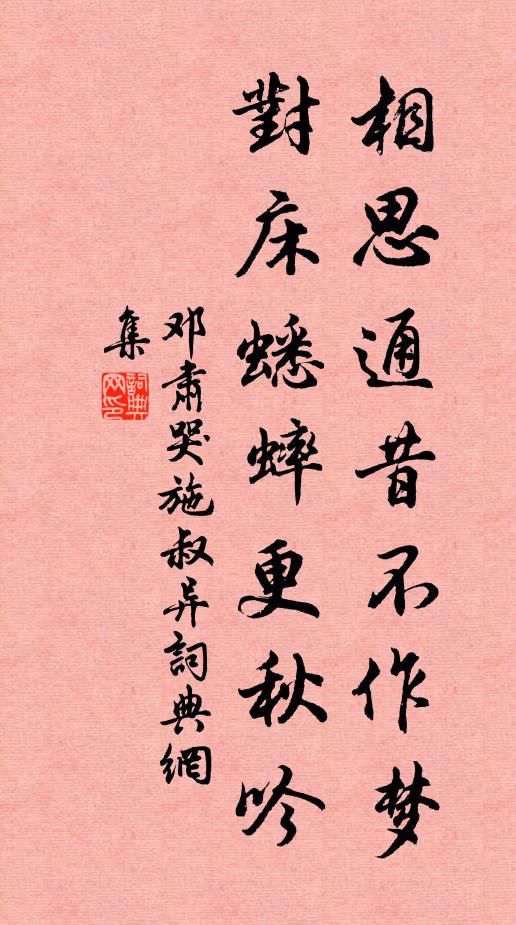 相思通昔不作梦
對床蟋蟀更秋吟
邓肅哭施叔异詞典網
集
詞典网印